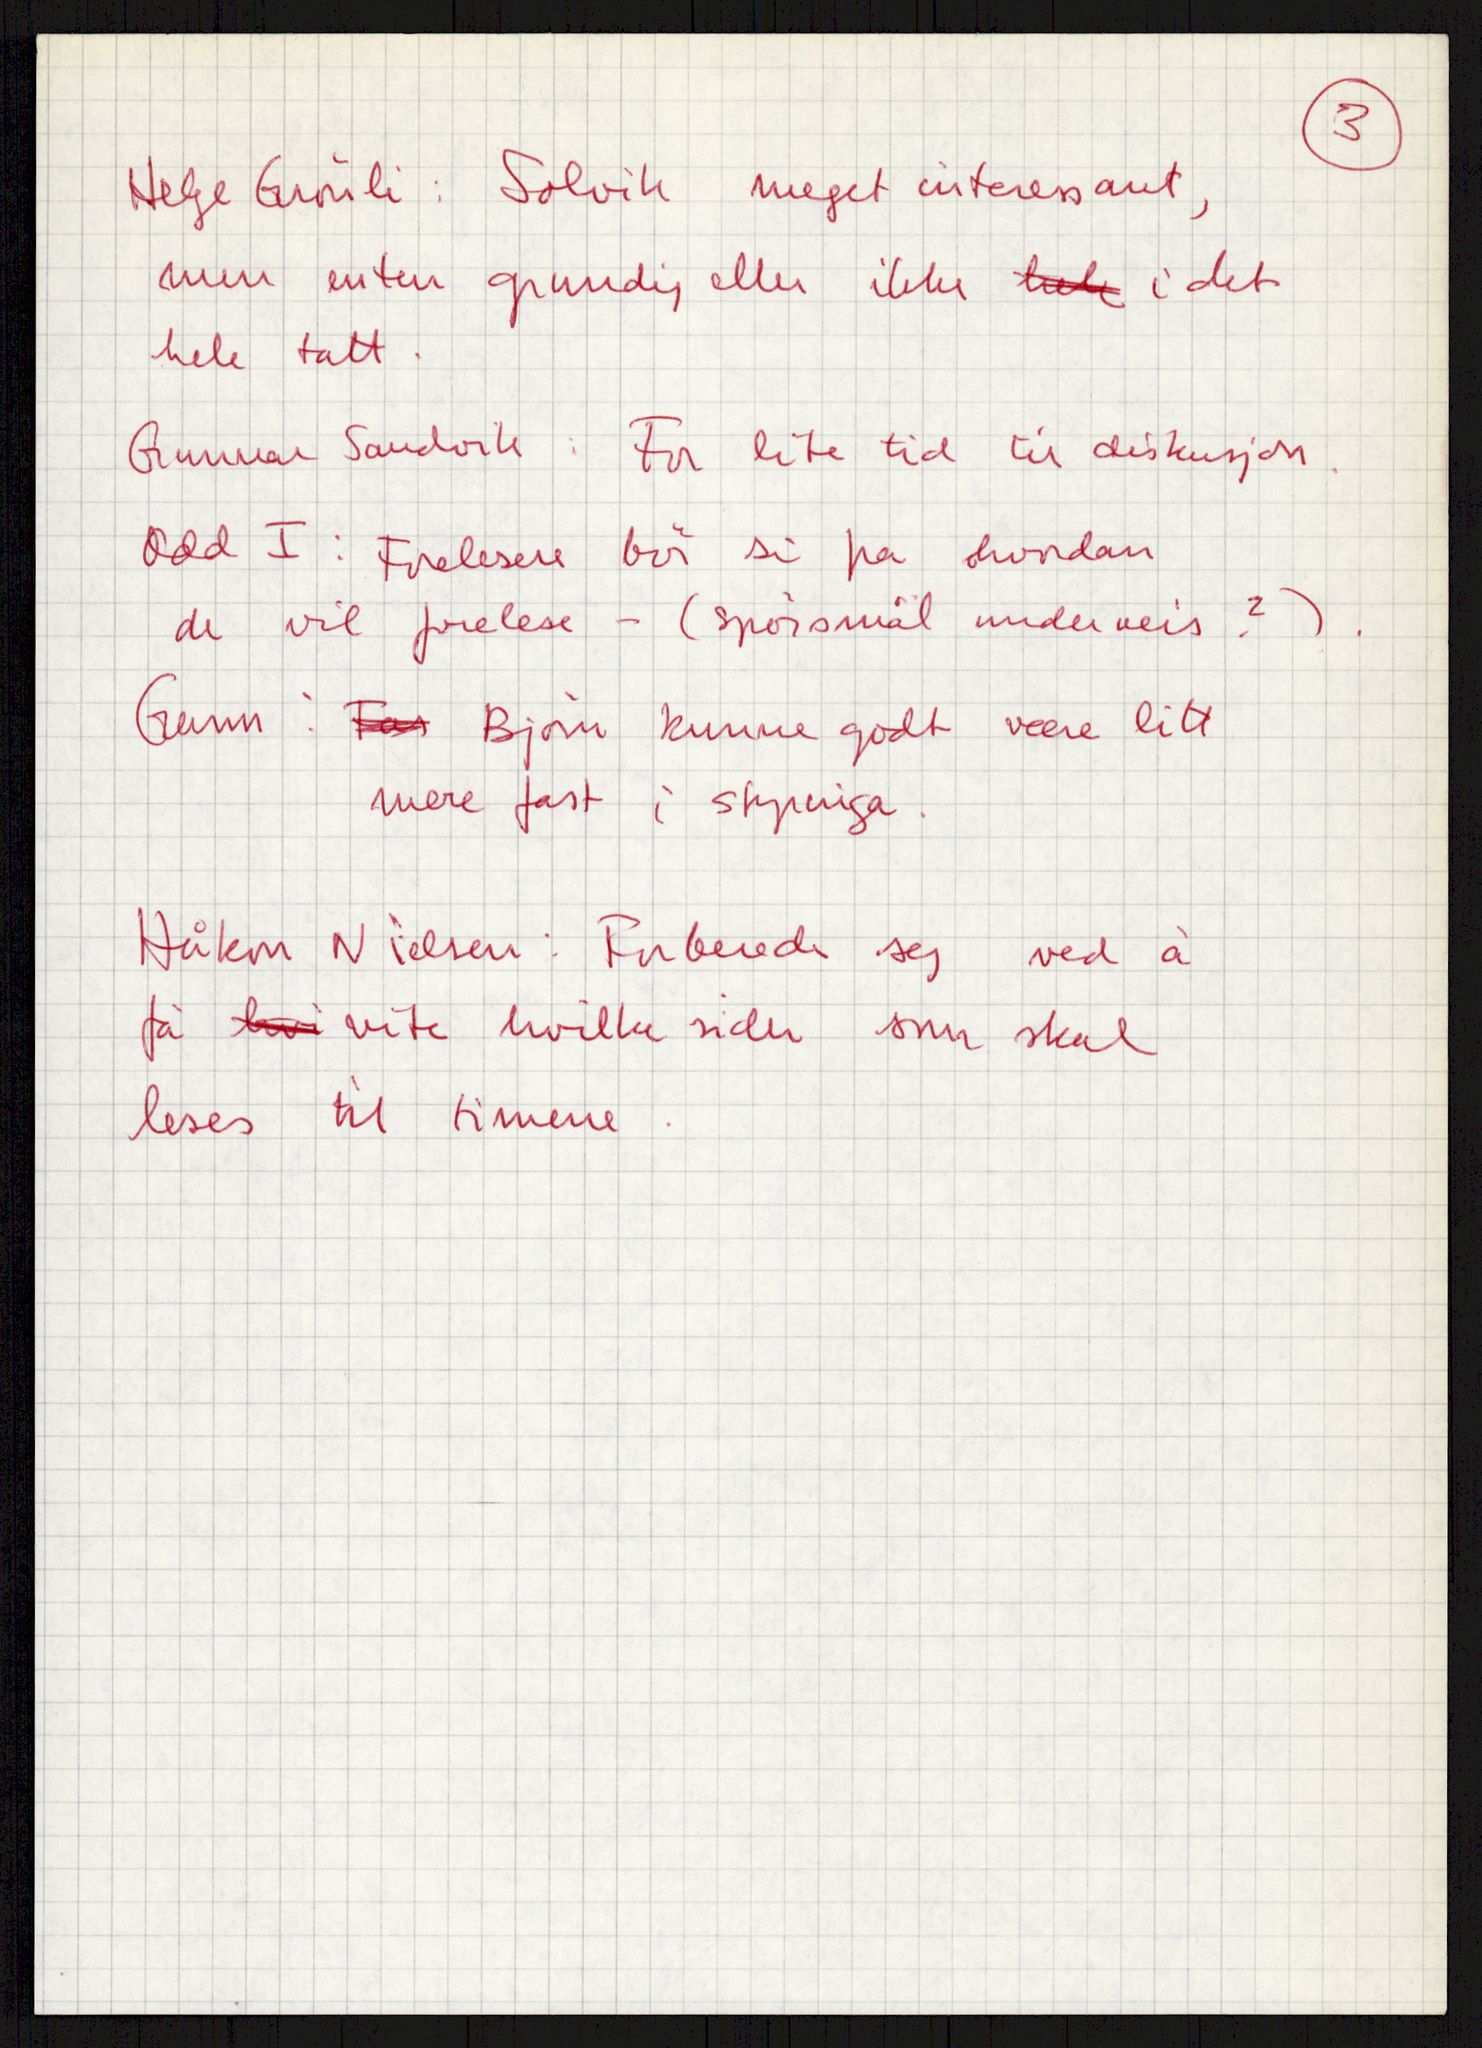 3
Helge Grönli: Solvik meget interessant,
men enten grundig eller ikke hele i det
hele tatt.
Gunnar Sandvik: For lite tid til diskusjon.
Odd I: Forelesere bör si fra hvordan
de vil forelese - (spörsmål underveis?).
Gunn: For Björn kunne godt være litt
mere fast i styringa.
Håkon Nielsen: Forberede seg ved å
få hvi vite hvilke sider som skal
leses til timene.